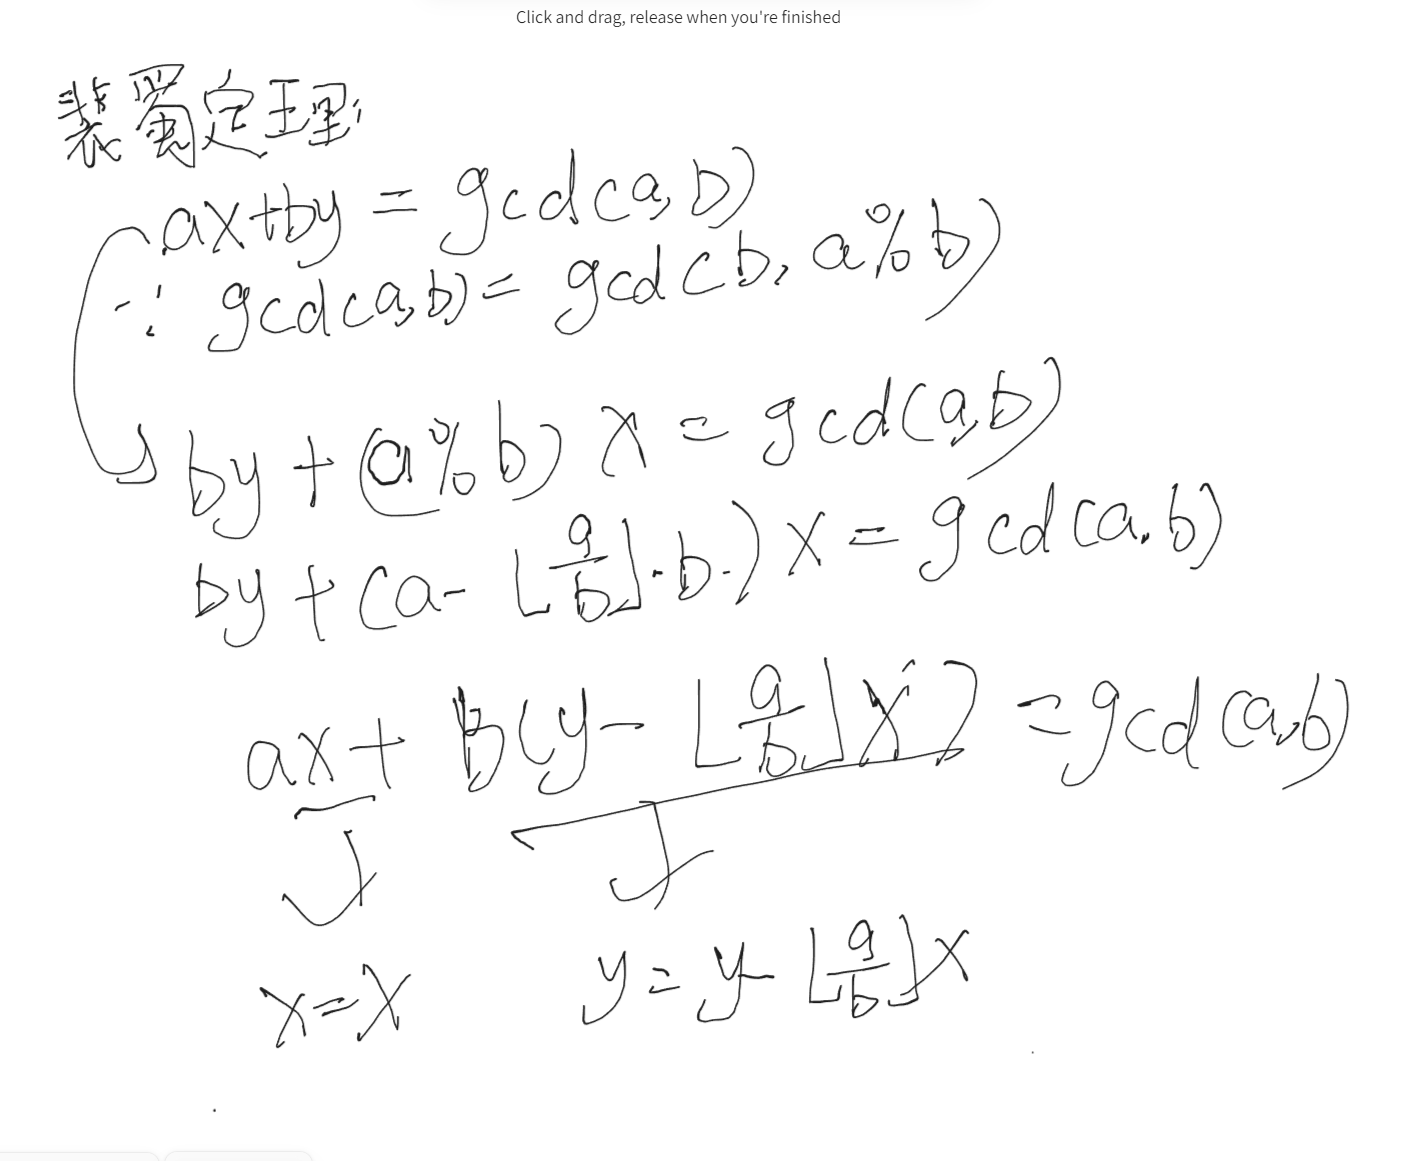 Click and drag, release when you're finished
装蜀定理:
ax+by = gcd(a,b)
∵ gcd(a,b) = gcd(b, a%b)
by + (a%b) x = gcd(a,b)
by + (a - ⌊a/b⌋·b·) x = gcd(a,b)
ax + b(y - ⌊a/b⌋x) = gcd(a,b)
x=x y=y-⌊a/b⌋x